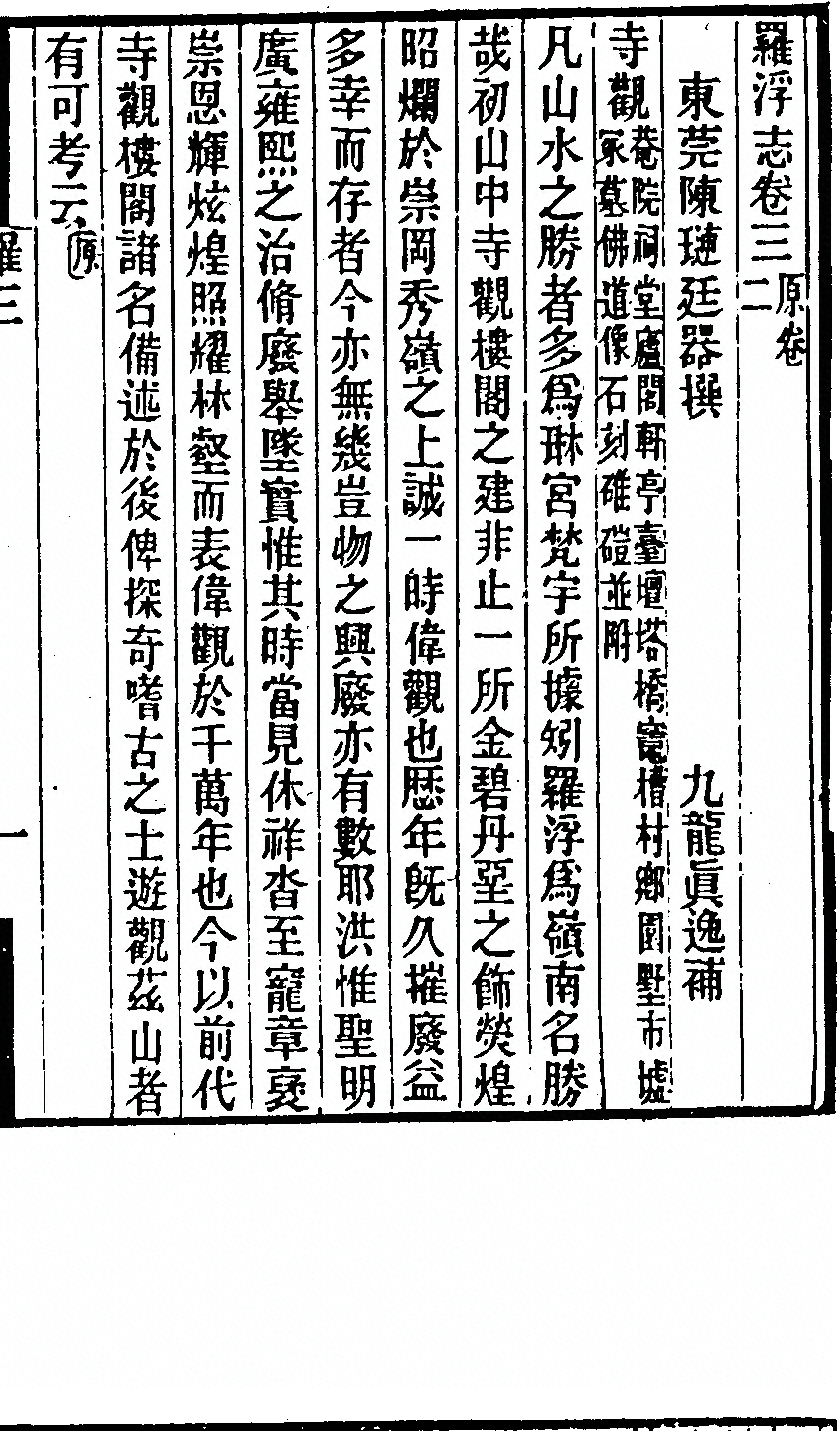 羅浮志卷三原卷二
東莞陳璉廷器撰　九龍眞逸補
寺觀菴院祠堂廬閣軒亭臺壇塔橋竈槽村鄉園墅市墟冢墓佛道像石刻碓磑並附
凡山水之勝者多爲琳宮梵宇所據矧羅浮爲嶺南名勝
哉初山中寺觀樓閣之建非止一所金碧丹堊之飾熒煌
昭爛於崇岡秀嶺之上誠一時偉觀也歷年旣久摧廢益
多幸而存者今亦無幾豈物之興廢亦有數耶洪惟聖明
廣雍熙之治脩廢舉墜實惟其時當見休祥沓至寵章襃
崇恩輝炫煌照耀林壑而表偉觀於千萬年也今以前代
寺觀樓閣諸名備述於後俾探奇嗜古之士遊觀茲山者
有可考云原
羅三
一